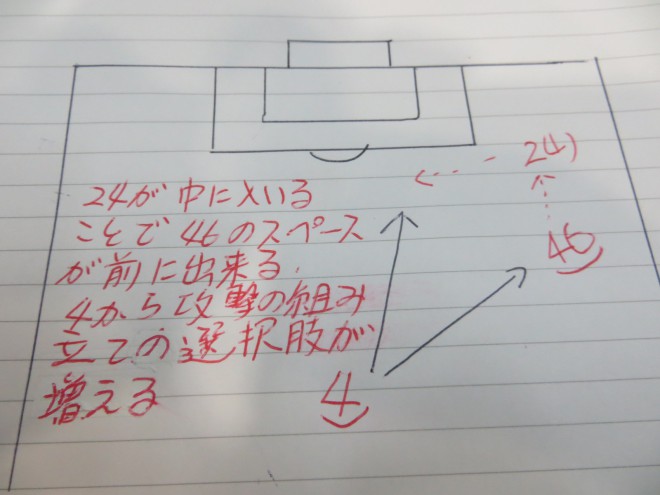 24)
46
24が中に入いる
ことで46のスペース
が前に出来る.
4から攻撃の組み
立ての選択肢が
増える
4